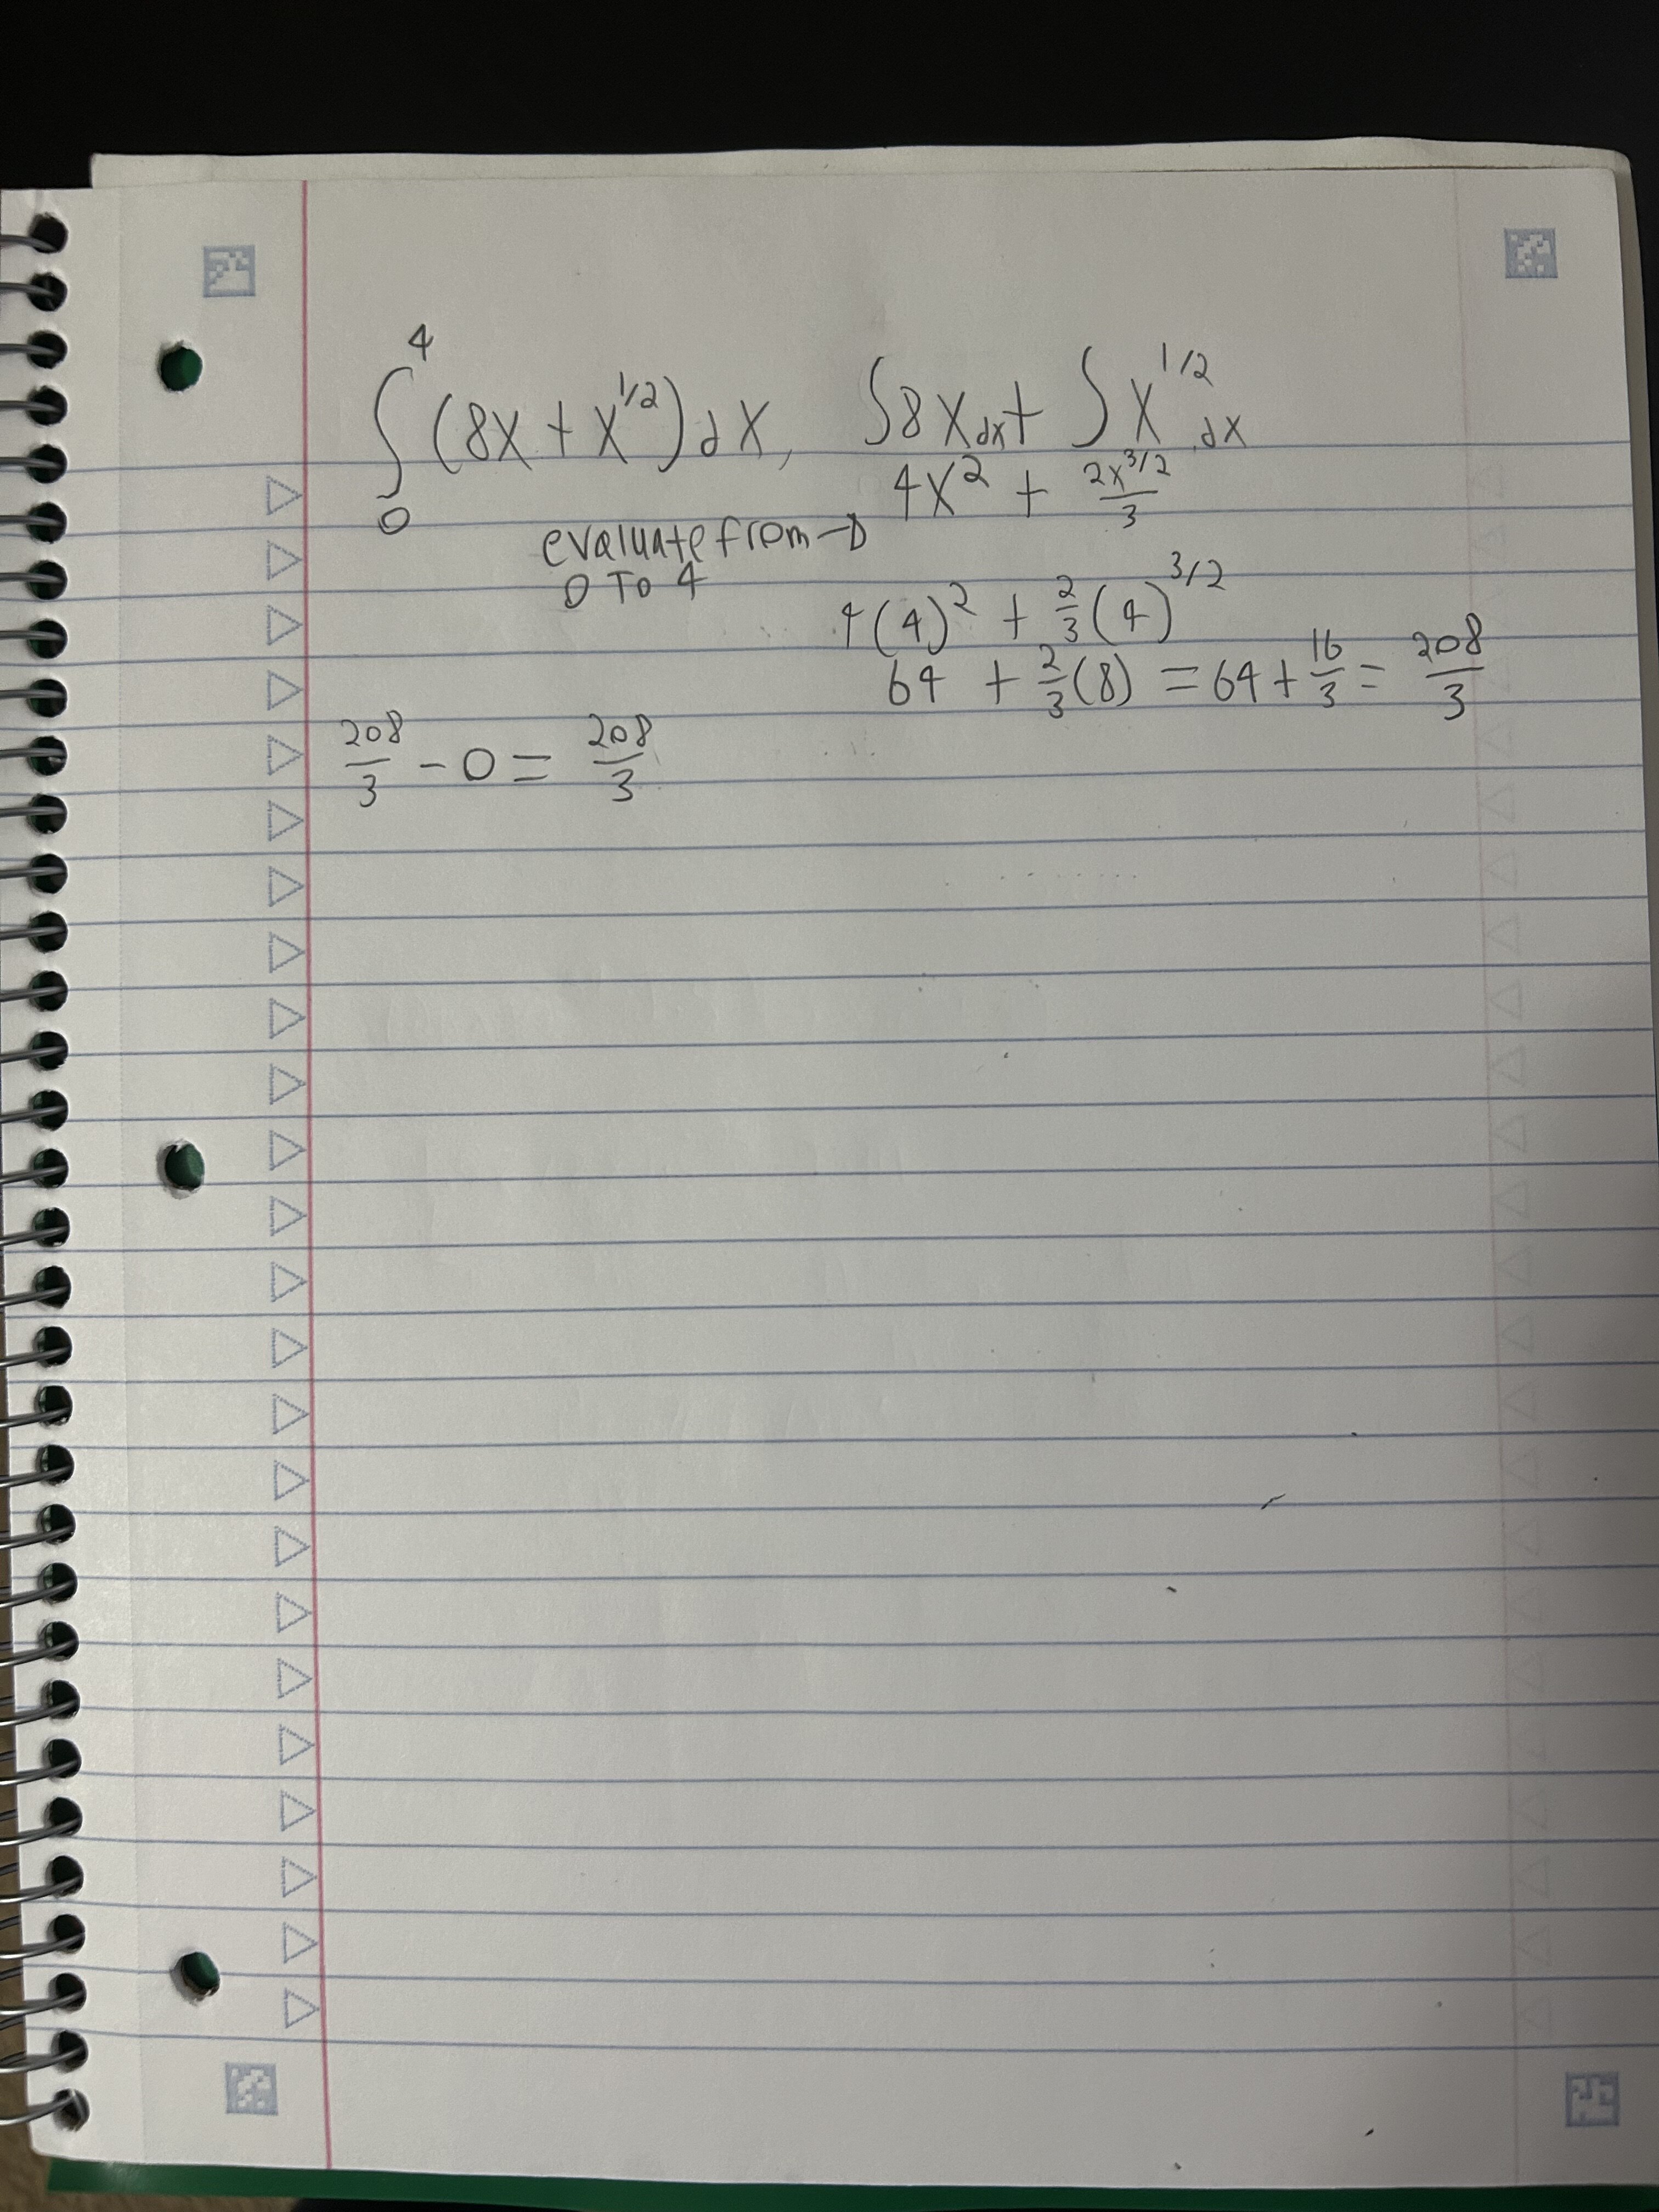 ∫₀⁴ (8x + x^1/2) dx, ∫8x dx + ∫x^1/2 dx
4x² + 2x^3/2 / 3
evaluate from →
0 TO 4
4(4)² + 2/3 (4)^3/2
64 + 2/3 (8) = 64 + 16/3 = 208/3
208/3 - 0 = 208/3